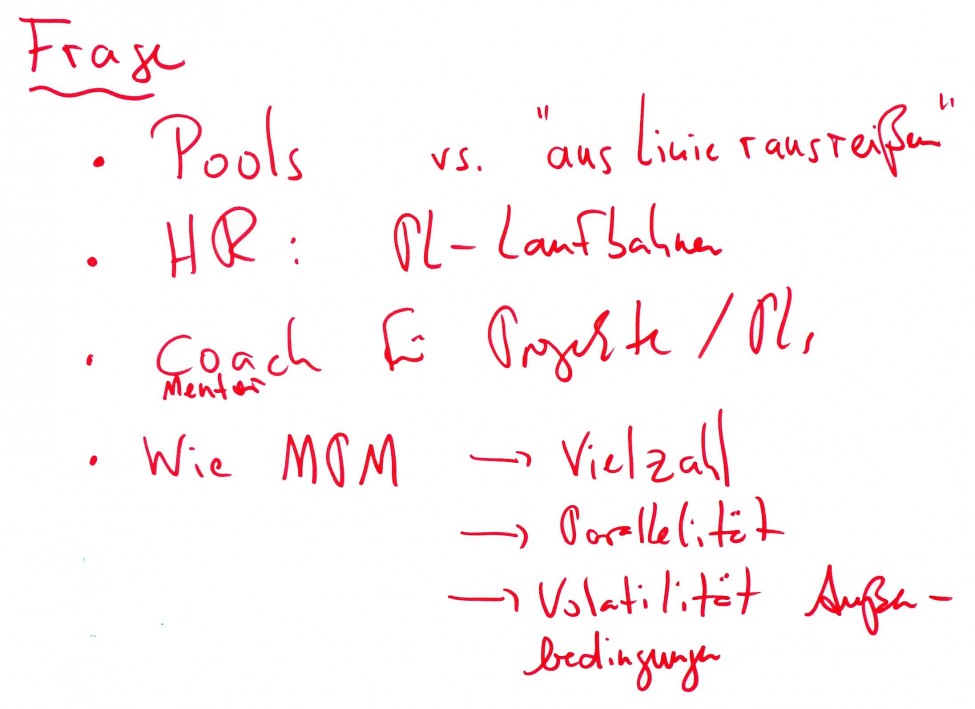 Frage
• Pools vs. "aus Linie rausreißen"
• HR: PL-Laufbahnen
• Coach für Projekte / PLs
Mentor
• Wie MPM → Vielzahl
→ Parallelität
→ Volatilität Außen-
bedingungen